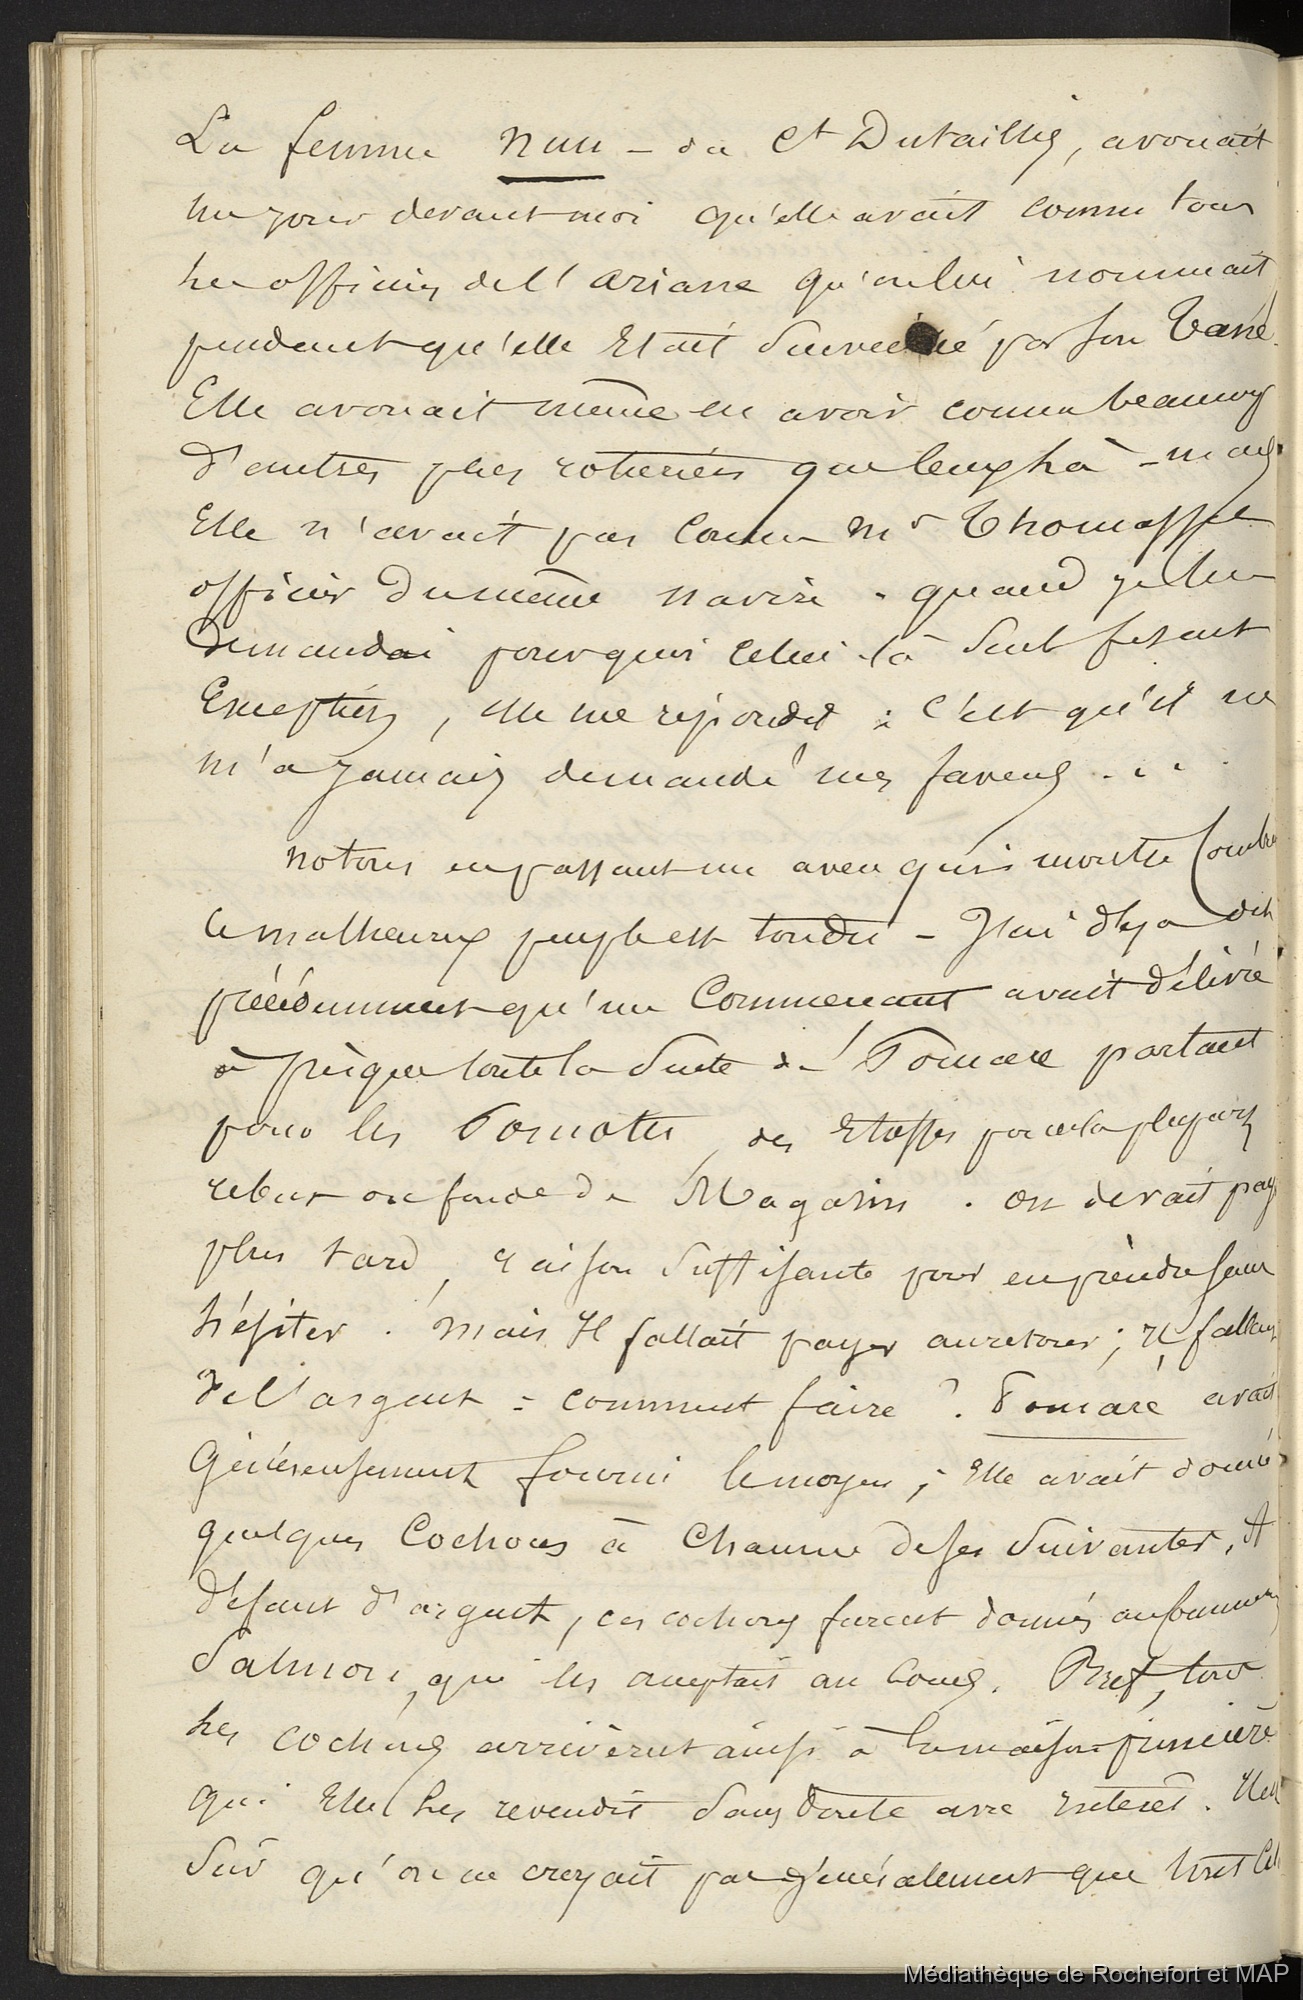 La femme Nun – du Ct Dutaillis, avouait
un jour devant moi qu'elle avait connu tous
les officiers de l'ariane qu'on lui nommait
pendant qu'elle Etait Surveillé par son Tané.
Elle avouait même en avoir connu beaucoup
d'autres plus roturiers que ceux là – mais
Elle n'avait pas Connu Mr Thomasset
officier du même navire. quand je lui
Demandai pourquoi Celui là Seul fesait
Exception, elle me répondit : C'est qu'il ne
m'a jamais demandé mes faveurs ....
Notons en passant un aveu qui montre Combien
le malheureux peuple est tondu – J'ai déja dit
précédemment qu'un Commercant avait délivré
à presque toute la Suite de Pomare partant
pour les Pomotus, des Etoffes pour la plupart
rebut ou fond de Magasin. on devait payer
plus tard, raison Suffisante pour en prendre sans
hésiter. Mais Il fallait payer au retour; Il fallait
de l'argent : comment faire ?. Pomaré avait
Généreusement fourni le moyen; Elle avait donné
quelques Cochons à Chacune de ses Suivantes. A
défaut d'argent, ces cochons furent donnés au fameux
Salmon, qui les acceptait au Cours. Bref, tous
les cochons arrivèrent ainsi à la maison
qui Elle les revendit Sans doute avec Intérêt. Il est
Sûr qu'on ne croyait pas généralement que tout cela
Médiathèque de Rochefort et MAP